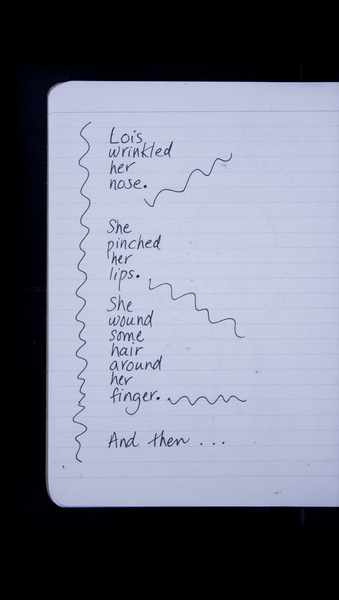 Lois
wrinkled
her
nose.
She
pinched
her
lips.
She
wound
some
hair
around
her
finger.
And then ...